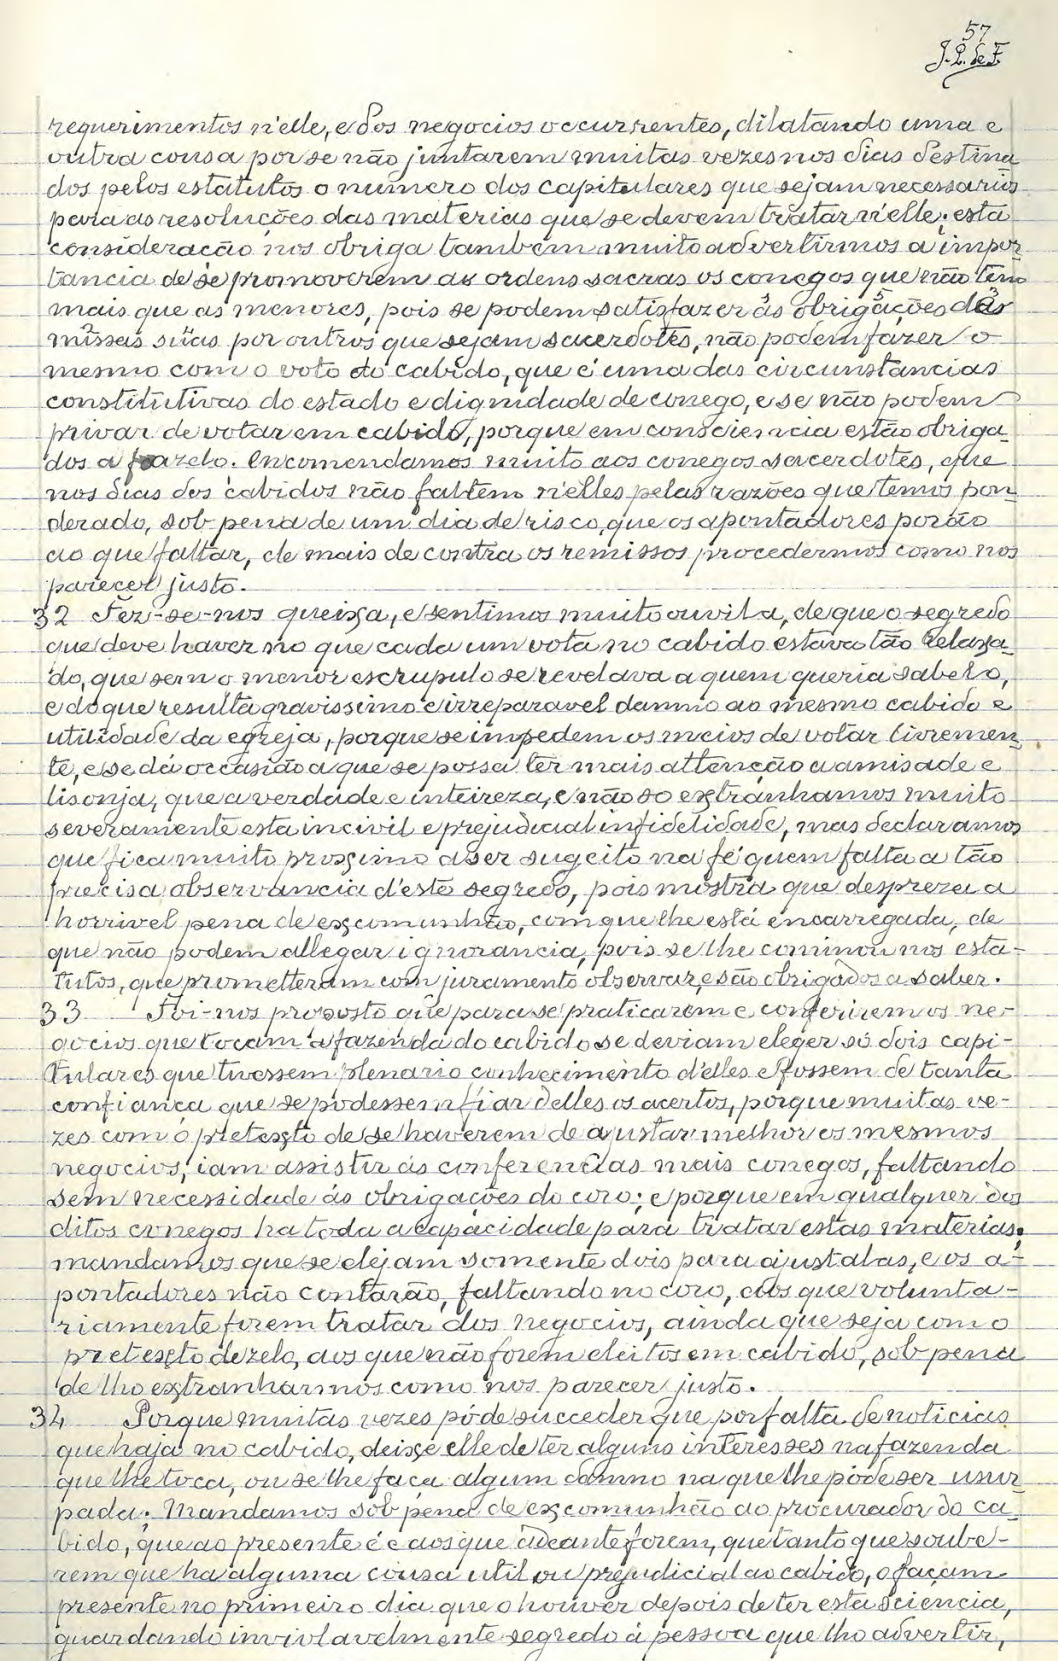 57
J. L. de F.
requerimentos n'elle, e dos negocios occurrentes, dilatando uma e
outra cousa por se não juntarem muitas vezes nos dias destina
dos pelos estatutos o numero dos capitulares que sejam necessarios
para as resoluções das materias que se devem tratar n'elle; esta
consideração nos obriga tambem muito advertirmos a impor
tancia de se promoverem as ordens sacras os conegos que não têm
mais que as menores, pois se podem satisfazer ás obrigações das
missas suas por outros que sejam sacerdotes, não podem fazer o
mesmo com o voto do cabido, que é uma das circunstancias
constitutivas do estado e dignidade de conego, e se não podem
privar de votar em cabido, porque em consciencia estão obriga-
dos a fazelo. Encomendamos muito aos conegos sacerdotes, que
nos dias dos cabidos não faltem n'elles pelas razões que temos pon-
derado, sob pena de um dia de risco, que os apontadores porão
ao que faltar, de mais de contra os remissos procedermos como nos
parecer justo.
32 Fez-se-nos queixa, e sentimos muito ouvila, de que o segredo
que deve haver no que cada um vota no cabido estava tão relaxa-
do, que sem o menor escrupulo se revelava a quem queria sabelo,
e do que resulta gravissimo e irreparavel damno ao mesmo cabido e
utilidade da egreja, porque se impedem os meios de votar livremen-
te, e se dá occasião a que se possa ter mais attenção a amisade e
lisonja, que a verdade e inteireza, e não só extranhamos muito
severamente esta incivil e prejudicial infidelidade, mas declaramos
que fica muito proximo a ser sugeito na fé quem falta a tão
precisa observancia d'este segredo, pois mostra que despreza a
horrivel pena de excomunhão, com que lhe está encarregada, de
que não podem allegar ignorancia, pois se lhe cominou nos esta-
tutos, que prometteram com juramento observar, e são obrigados a saber.
33 Foi-nos proposto que para se praticarem e conferirem os ne-
gocios que tocam á fazenda do cabido se deviam eleger só dois capi-
tulares que tivessem plenario conhecimento d'elles e fossem de tanta
confiança que se podessem fiar d'elles os acertos, porque muitas ve-
zes com o pretexto de se haverem de ajustar melhor os mesmos
negocios, iam assistir ás conferencias mais conegos, faltando
sem necessidade ás obrigações do coro; e porque em qualquer dos
ditos conegos ha toda a capacidade para tratar estas materias;
mandamos que se elejam somente dois para ajustalas, e os a-
pontadores não contarão, faltando no coro, aos que volunta-
riamente forem tratar dos negocios, ainda que seja com o
pretexto de zelo, aos que não forem eleitos em cabido, sob pena
de lho extranharmos como nos parecer justo.
34 Porque muitas vezes póde succeder que por falta de noticias
que haja no cabido, deixe elle de ter alguns interesses na fazenda
que lhe toca, ou se lhe faça algum damno na que lhe póde ser usur-
pada; Mandamos sob pena de excomunhão ao procurador do ca-
bido, que ao presente é e aos que adeante forem, que tanto que soube-
rem que ha alguma cousa util ou prejudicial ao cabido, o façam
presente no primeiro dia que o houver depois de ter esta sciencia,
guardando inviolavelmente segredo á pessoa que lho advertir,